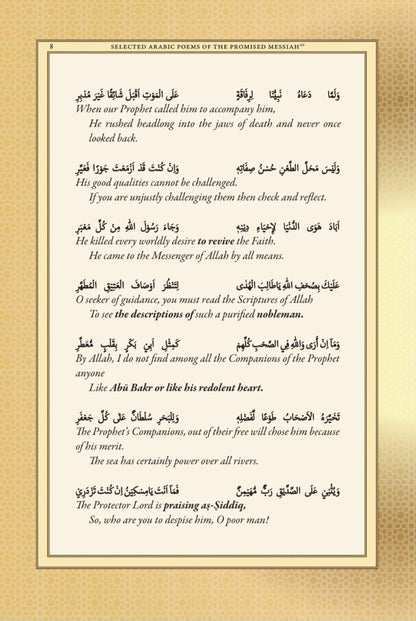 8 SELECTED ARABIC POEMS OF THE PROMISED MESSIAH
وَلَمَّا دَعَاهُ نَبِيُّنَا لِرِفَاقَةٍ عَلَى الْمَوْتِ اَقْبَلَ شَائِقًا غَيْرَ مُدْبِرٍ
When our Prophet called him to accompany him,
He rushed headlong into the jaws of death and never once
looked back.
وَلَيْسَ مَحَلَّ الطَّعْنِ حُسْنُ صِفَاتِهٖ وَاِنْ كُنْتَ قَدْ اَزْمَعْتَ جَوْرًا فَعَيِّرٖ
His good qualities cannot be challenged.
If you are unjustly challenging them then check and reflect.
اَبَادَ هَوَى الدُّنْيَا لِاِحْيَاءِ دِيْنِهٖ وَجَاءَ رَسُوْلَ اللّٰهِ مِنْ كُلِّ مَعْبَرٖ
He killed every worldly desire to revive the Faith.
He came to the Messenger of Allah by all means.
عَلَيْكَ بِصُحُفِ اللّٰهِ يَاطَالِبَ الْهُدٰى لِتَنْظُرَ اَوْصَافَ الْعَتِيْقِ الْمُطَهَّرِ
O seeker of guidance, you must read the Scriptures of Allah
To see the descriptions of such a purified nobleman.
وَمَا اِنْ اَرٰى وَاللّٰهِ فِي الصَّحْبِ كُلِّهِمْ كَمِثْلِ اَبِيْ بَكْرٍ بِقَلْبٍ مُّعَطَّرِ
By Allah, I do not find among all the Companions of the Prophet
anyone
Like Abū Bakr or like his redolent heart.
تَخَيَّرَهُ الْاَصْحَابُ طَوْعًا لِّفَضْلِهٖ وَلِلْبَحْرِ سُلْطَانٌ عَلٰى كُلِّ جَعْفَرِ
The Prophet's Companions, out of their free will chose him because
of his merit.
The sea has certainly power over all rivers.
وَيُثْنِيْ عَلَى الصِّدِّيْقِ رَبٌّ مُّهَيْمِنٌ فَمَا اَنْتَ يَامِسْكِيْنُ اِنْ كُنْتَ تَزْدَرِيْ
The Protector Lord is praising aṣ-Ṣiddīq,
So, who are you to despise him, O poor man!